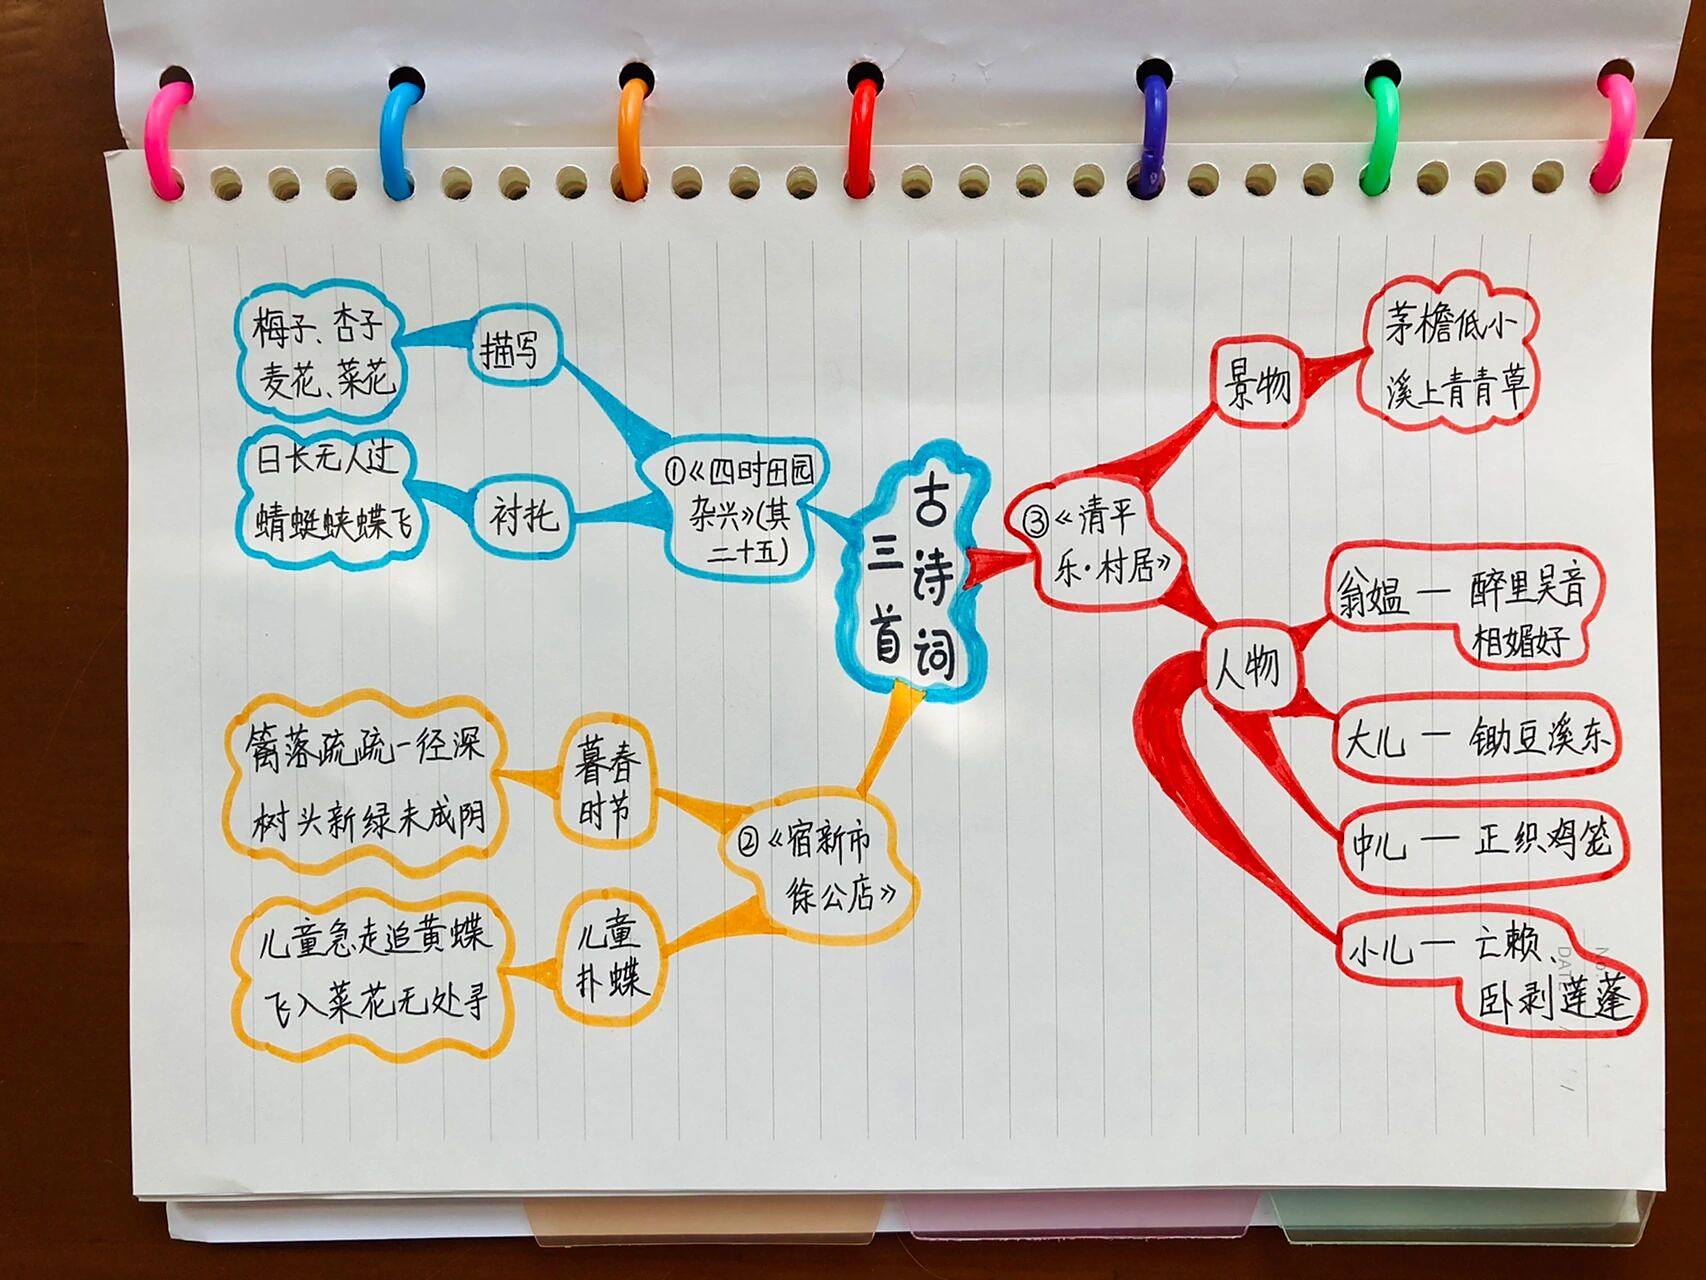 古诗词
三首
①《四时田园
杂兴》(其
二十五)
描写
梅子、杏子
麦花、菜花
衬托
日长无人过
蜻蜓蛱蝶飞
②《宿新市
徐公店》
暮春
时节
篱落疏疏一径深
树头新绿未成阴
儿童
扑蝶
儿童急走追黄蝶
飞入菜花无处寻
③《清平
乐·村居》
景物
茅檐低小
溪上青青草
人物
翁媪—醉里吴音
相媚好
大儿—锄豆溪东
中儿—正织鸡笼
小儿—亡赖、
卧剥莲蓬
No.
DATE